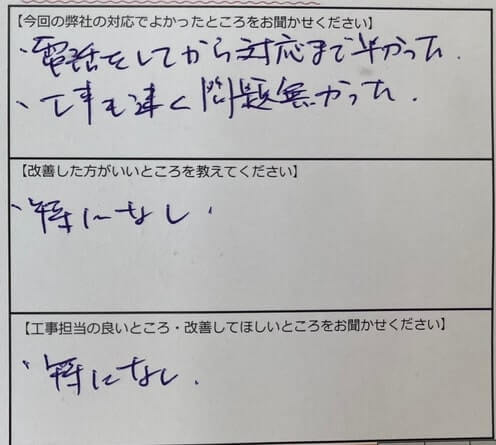 【今回の弊社の対応でよかったところをお聞かせください】
・電話をしてから対応まで早かった.
・工事も速く問題無かった.
【改善した方がいいところを教えてください】
・特になし.
【工事担当の良いところ・改善してほしいところをお聞かせください】
・特になし.